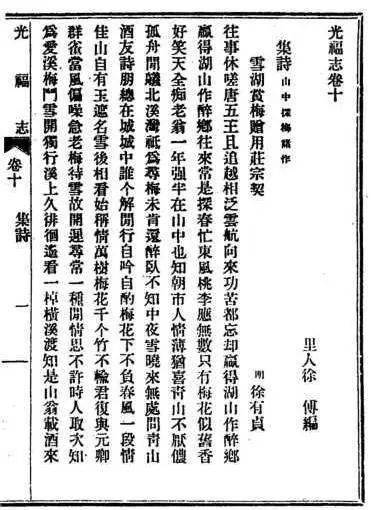 光福志卷十
里人徐 傅編
集詩 山中探梅雜作
雪湖賞梅贈用莊宗契 明 徐有貞
往事休嗟唐五王且追越相泛雲航向來功苦都忘却贏得湖山作醉鄉
贏得湖山作醉鄉往來常是探春忙東風桃李應無數只有梅花似舊香
好笑天全痴老翁一年强半在山中也知朝市人情薄猶喜青山不厭儂
孤舟閒艤北溪灣祗爲尋梅未肯還醉臥不知中夜雪曉來無處問青山
酒友詩朋總在城城中誰个解閒行自吟自酌梅花下不負春風一段情
佳山自有玉遮名雪後相看始稱情萬樹梅花千个竹不輸君復與元卿
群雀當風偏噪急老梅待雪故開遲尋常一種閒情思不許時人取次知
爲愛溪梅鬥雪開獨行溪上久徘徊遙看一棹橫溪渡知是山翁載酒來
光福志 卷十 集詩 一